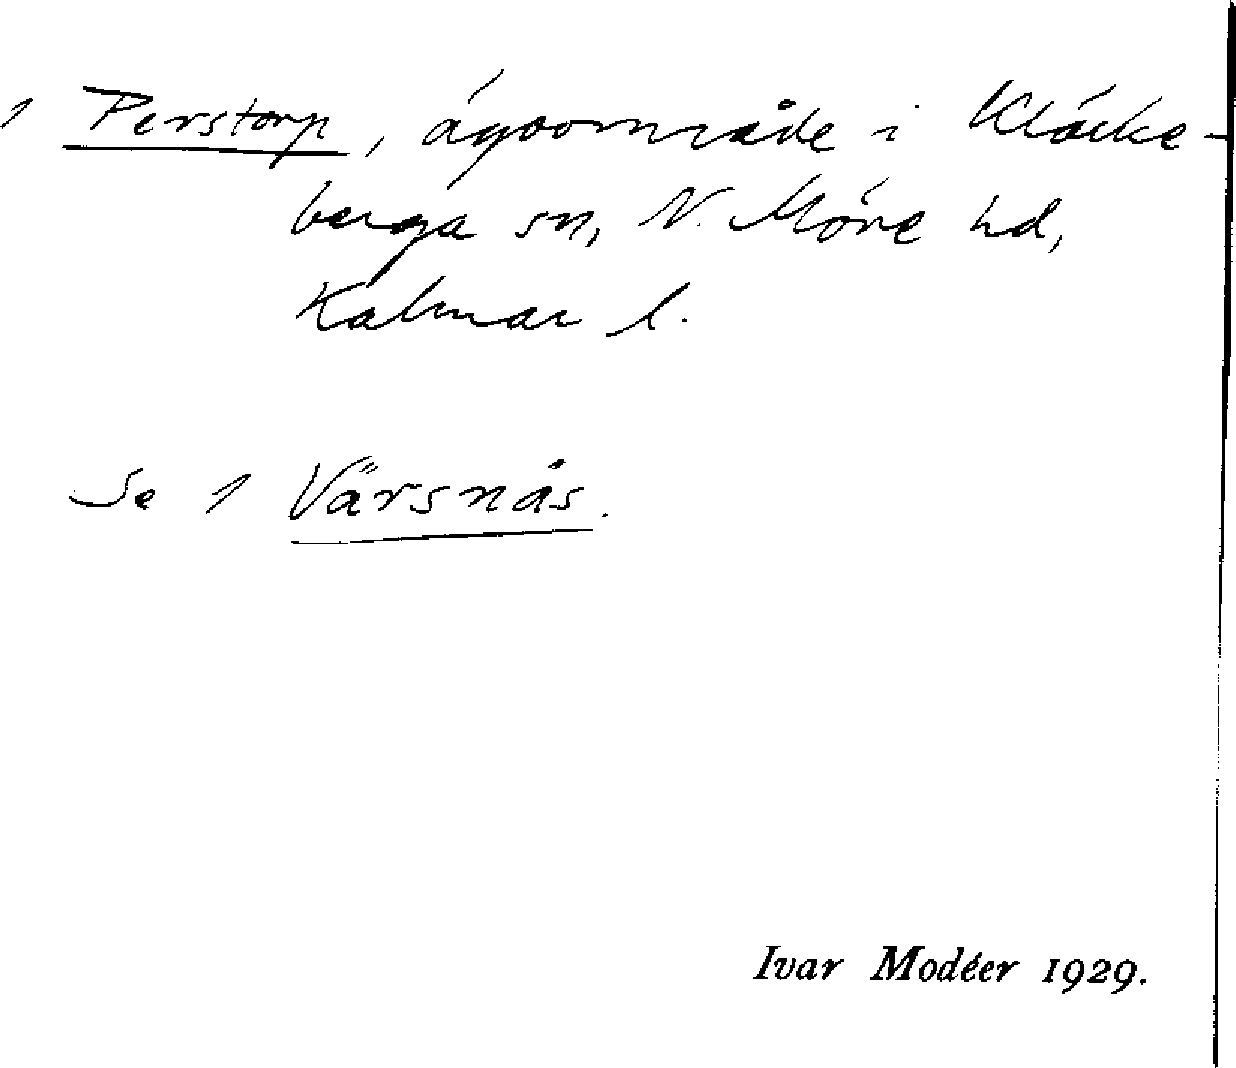 1 Perstorp, ägoområde i Kläcke-
berga sn, N. Möre hd,
Kalmar l.
Se 1 Värsnås.
Ivar Modéer 1929.